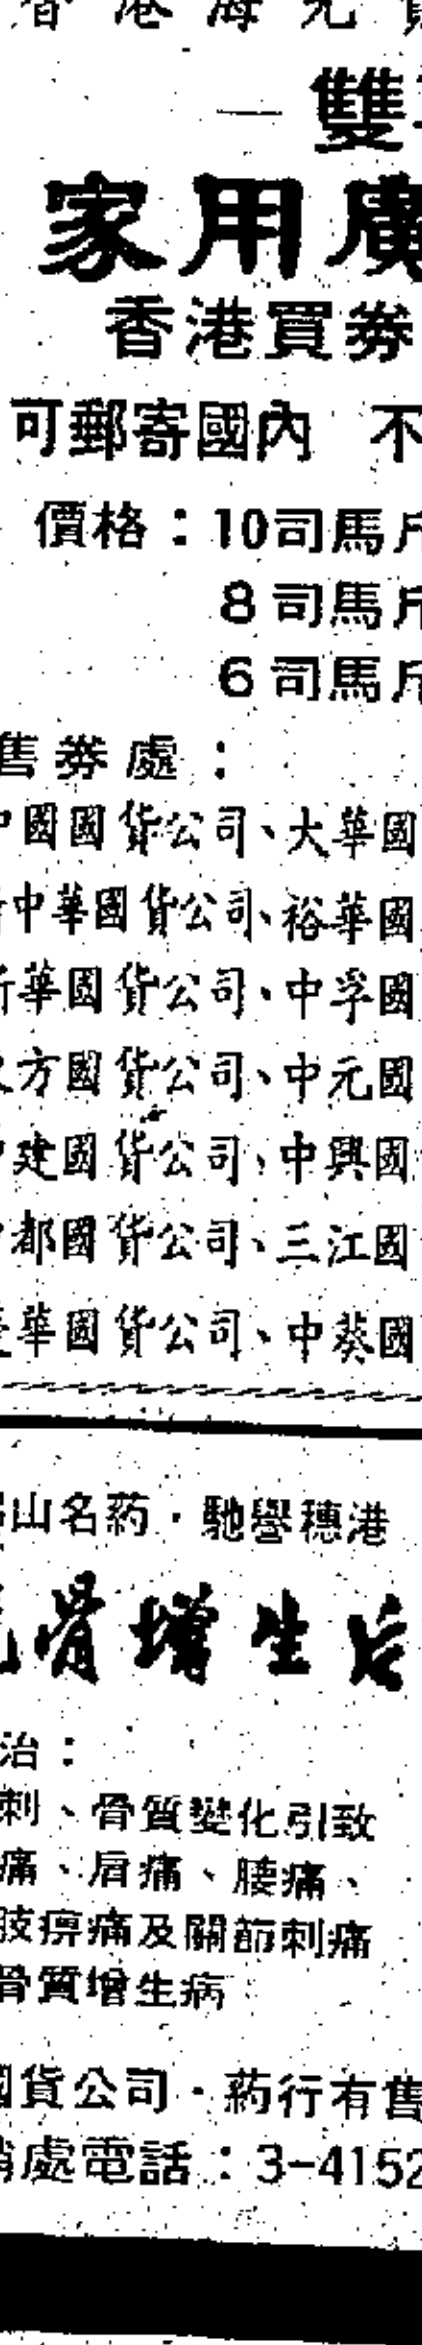 香港海元
雙
家用
香港買券
可郵寄國內 不
價格：10司馬斤
8司馬斤
6司馬斤
售券處：
國國貨公司、大華國
中華國貨公司、裕華國
華國貨公司、中孚國
方國貨公司、中元國
建國貨公司、中興國
都國貨公司、三江國
華國貨公司、中葵國
山名药·馳譽穗港
骨增生
治：
刺、骨質變化引致
痛、肩痛、腰痛、
肢痹痛及關節刺痛
骨質增生病
國貨公司·药行有售
處電話：3-4152